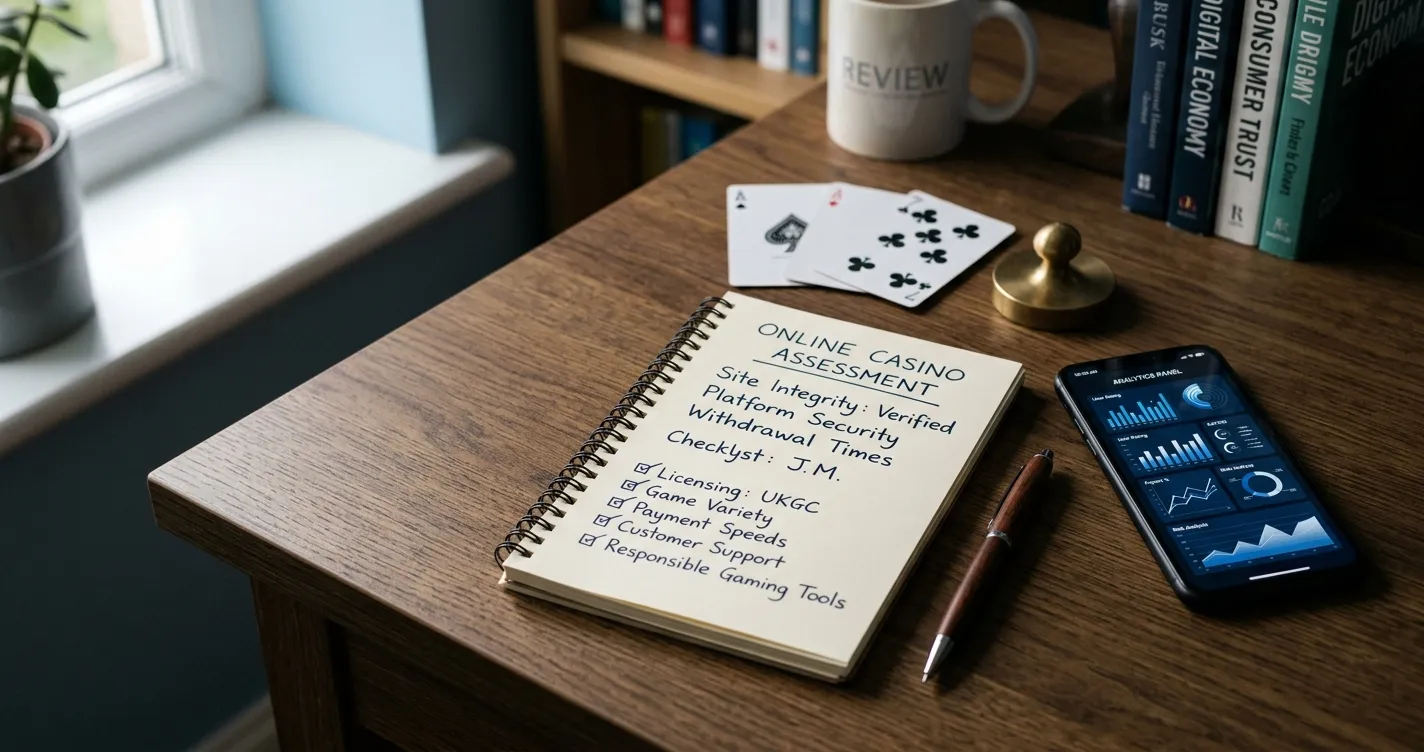 REVIEW
RUSK
DIGITAL ECONOMY
CONSUMER TRUST
R
LE DRIGMY
DIGITAL
ECONOMY
A
A
7
7
ONLINE CASINO
ASSESSMENT
Site Integrity: Verified
Platform Security
Withdrawal Times
Checklyst: J.M.
Licensing: UKGC
Game Variety
Payment Speeds
Customer Support
Responsible Gaming Tools
ANALYTICS PANEL